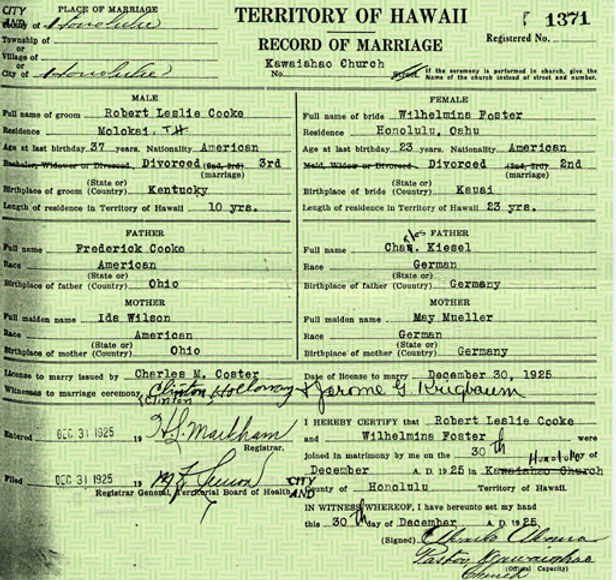 CITY AND
PLACE OF MARRIAGE
County of Honolulu
Township of
or
Village of
or
City of Honolulu
TERRITORY OF HAWAII
RECORD OF MARRIAGE
Kawaiahao Church
No. Street.
1371
Registered No.
If the ceremony is performed in church, give the
Name of the church instead of street and number.
MALE
Full name of groom Robert Leslie Cooke
Residence Molokai, T H
Age at last birthday 37 years. Nationality American
Bachelor, Widower or Divorced Divorced (2nd, 3rd) 3rd
(marriage)
(State or)
Birthplace of groom (Country) Kentucky
Length of residence in Territory of Hawaii 10 yrs.
FEMALE
Full name of bride Wilhelmina Foster
Residence Honolulu, Oahu
Age at last birthday 23 years. Nationality American
Maid, Widow or Divorced Divorced (2nd, 3rd) 2nd
(marriage)
(State or)
Birthplace of bride (Country) Kauai
Length of residence in Territory of Hawaii 23 yrs.
FATHER
Full name Frederick Cooke
Race American
(State or)
Birthplace of father (Country) Ohio
FATHER
Full name Charles Kiesel
Race German
(State or)
Birthplace of father (Country) Germany
MOTHER
Full maiden name Ida Wilson
Race American
(State or)
Birthplace of mother (Country) Ohio
MOTHER
Full maiden name May Mueller
Race German
(State or)
Birthplace of mother (Country) Germany
License to marry issued by Charles M. Coster
Date of license to marry December 30, 1925
Witnesses to marriage ceremony Clinton Holloway & Jerome G. Krugbaum
(Clinton)
Entered DEC 31 1925 19 H L Markham
Registrar.
Filed DEC 31 1925 19
Registrar General, Territorial Board of Health.
I HEREBY CERTIFY that Robert Leslie Cooke
and Wilhelmina Foster were
joined in matrimony by me on the 30th day of
Honolulu
December A. D. 1925 in Kawaiahao Church
CITY AND
County of Honolulu Territory of Hawaii.
IN WITNESS WHEREOF, I have hereunto set my hand
this 30th day of December A. D. 1925.
(Signed)
Pastor Kawaiahao
Church
(Official Capacity)